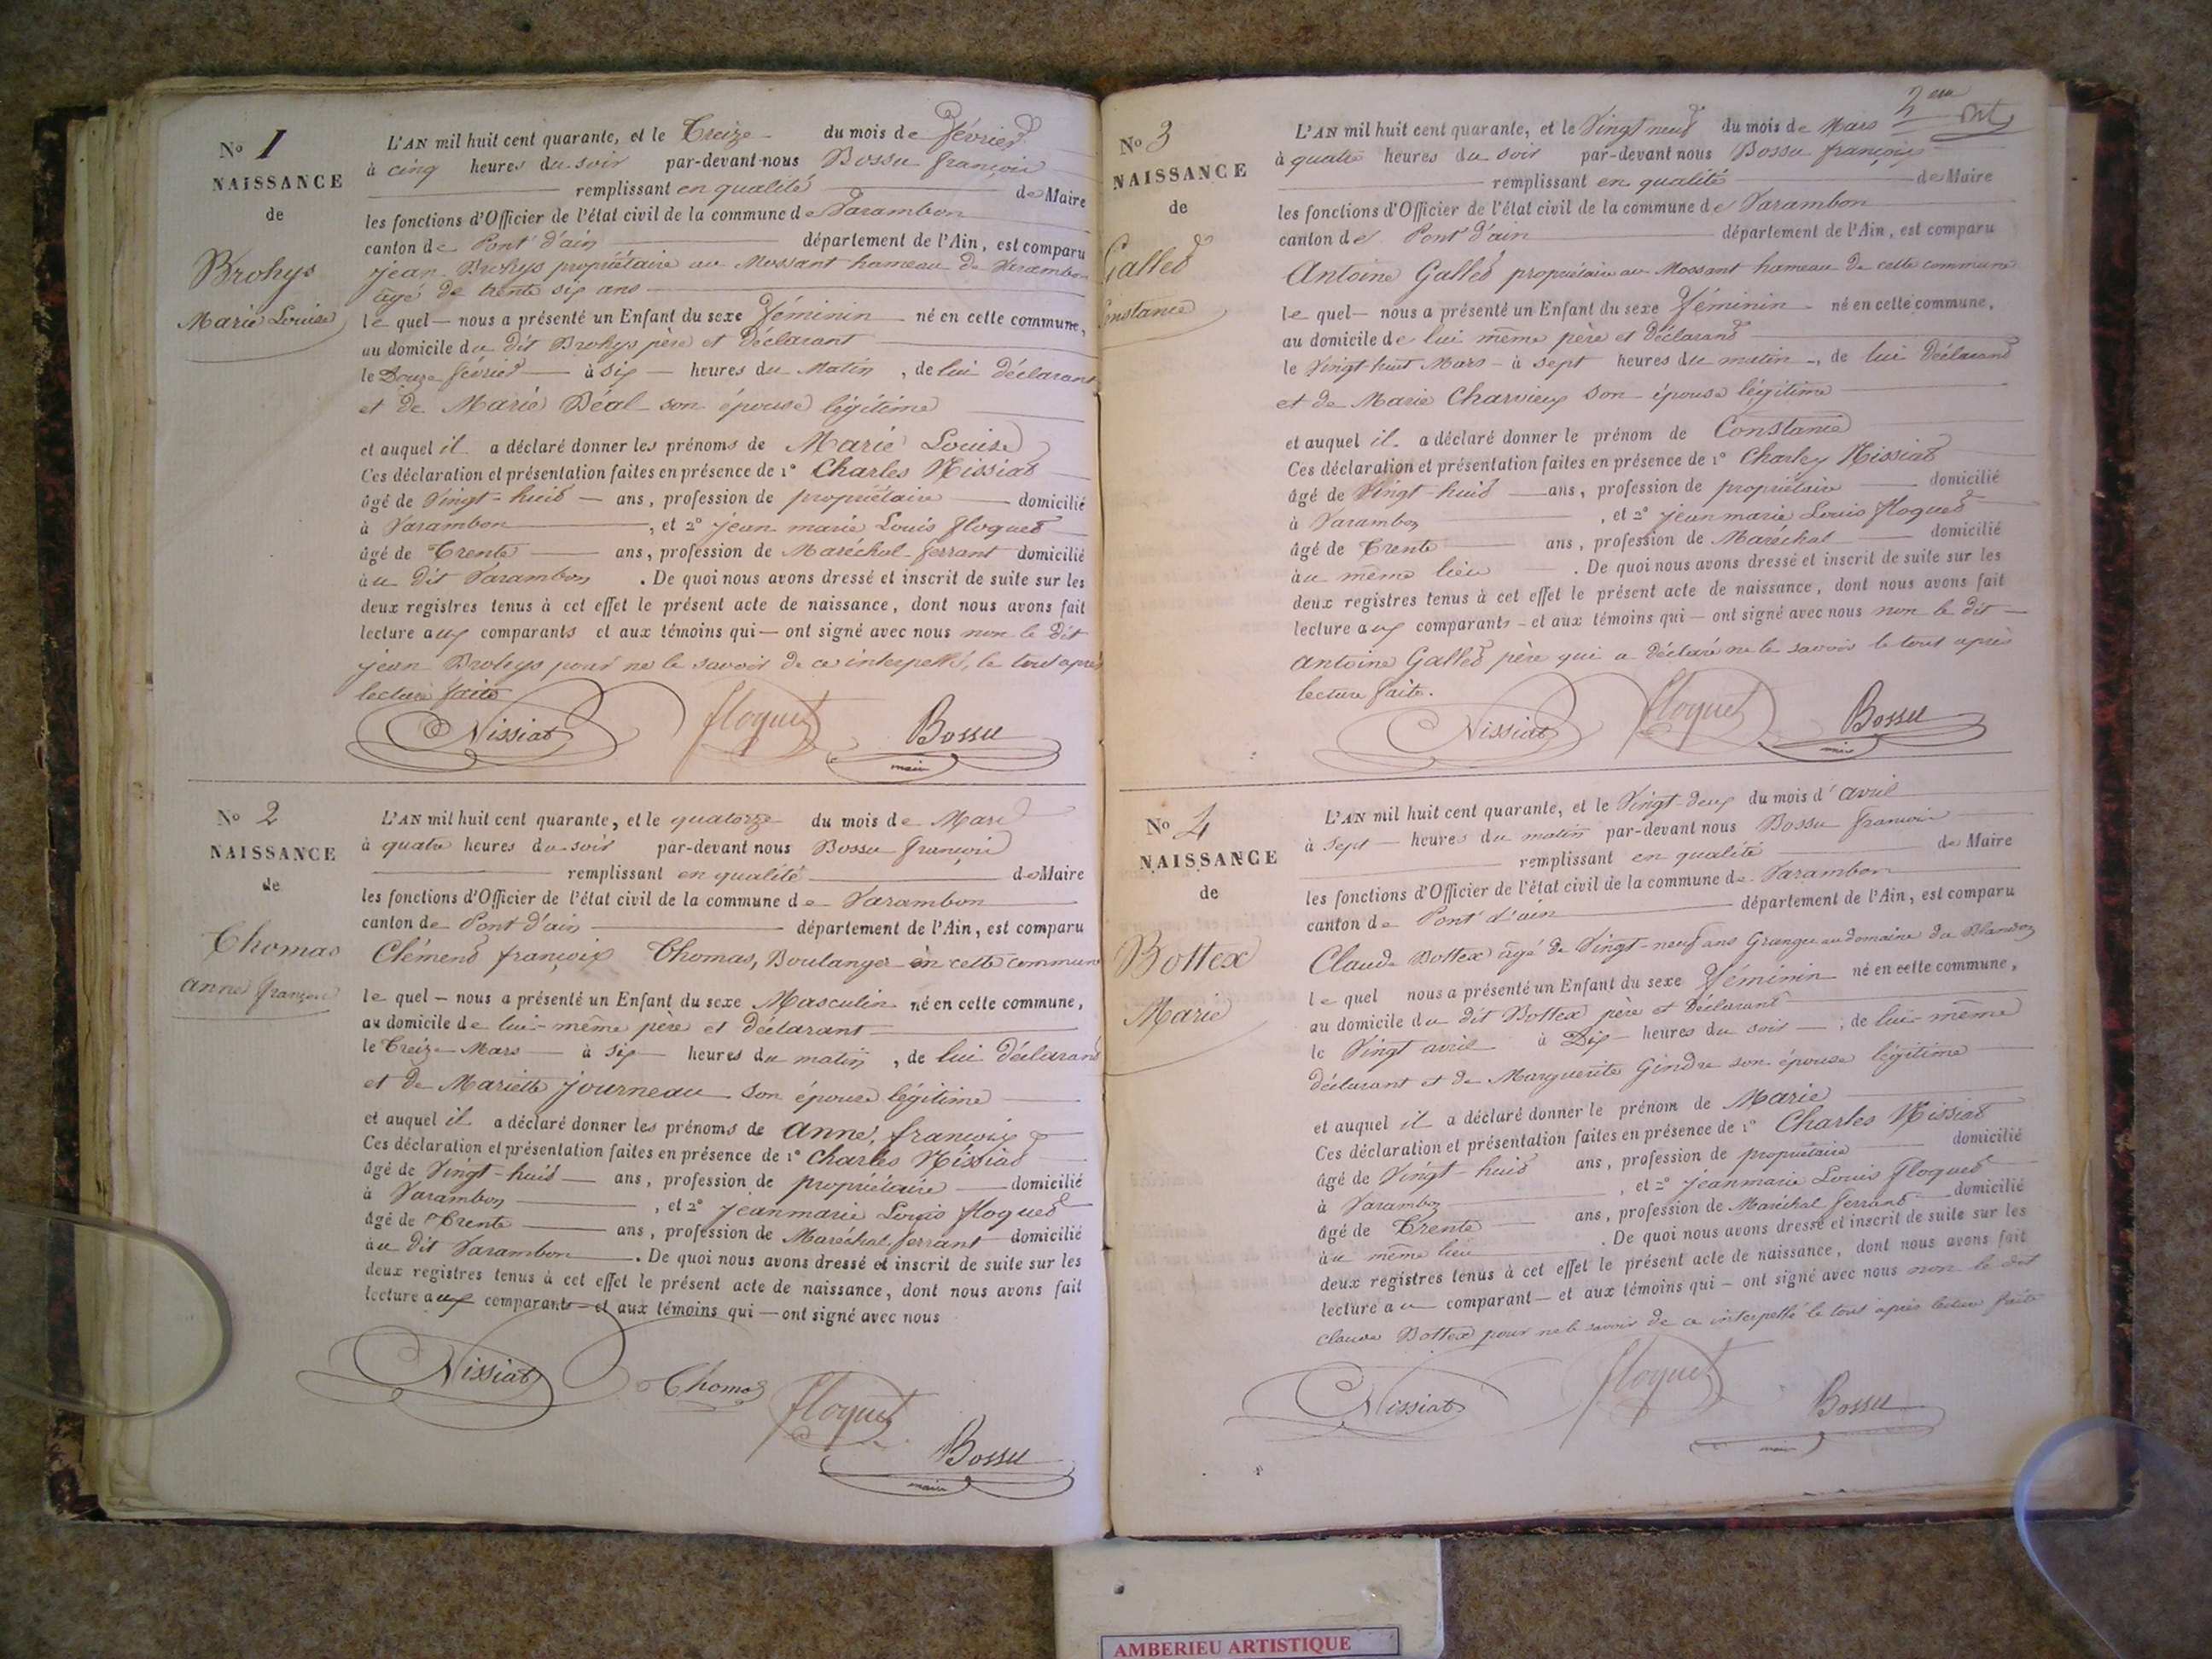 N° 1
NAISSANCE
de
Brohys
Marie Louise
L'AN mil huit cent quarante, et le Treize du mois de février
à cinq heures du soir par-devant nous Bossu françois
remplissant en qualité de Maire
les fonctions d'Officier de l'état civil de la commune de Varambon
canton de Pont d'ain département de l'Ain, est comparu
jean Brohys propriétaire au Mossant hameau de Varambon
âgé de trente six ans
le quel nous a présenté un Enfant du sexe féminin né en cette commune,
au domicile du dit Brohys père et déclarant
le Douze février à six heures du Matin, de lui déclarant
et de Marie Déal son épouse légitime
et auquel il a déclaré donner les prénoms de Marie Louise
Ces déclaration et présentation faites en présence de 1° Charles Nissiat
âgé de Vingt-huit ans, profession de propriétaire domicilié
à Varambon, et 2° jean marie Louis floquet
âgé de Trente ans, profession de Maréchal-ferrant domicilié
au dit Varambon. De quoi nous avons dressé et inscrit de suite sur les
deux registres tenus à cet effet le présent acte de naissance, dont nous avons fait
lecture aux comparants et aux témoins qui ont signé avec nous non le dit
jean Brohys pour ne le savoir de ce interpellé, le tout après
lecture faite
Nissiat floquet Bossu
maire
N° 2
NAISSANCE
de
Thomas
anne françois
L'AN mil huit cent quarante, et le quatorze du mois de Mars
à quatre heures du soir par-devant nous Bossu françois
remplissant en qualité de Maire
les fonctions d'Officier de l'état civil de la commune de Varambon
canton de Pont d'ain département de l'Ain, est comparu
Clément françois Thomas, Boulanger en cette commune
le quel nous a présenté un Enfant du sexe Masculin né en cette commune,
au domicile de lui-même père et déclarant
le Treize Mars à six heures du matin, de lui déclarant
et de Mariette journeau son épouse légitime
et auquel il a déclaré donner les prénoms de anne, françois
Ces déclaration et présentation faites en présence de 1° Charles Nissiat
âgé de Vingt-huit ans, profession de propriétaire domicilié
à Varambon, et 2° jean marie Louis floquet
âgé de Trente ans, profession de Maréchal ferrant domicilié
au dit Varambon. De quoi nous avons dressé et inscrit de suite sur les
deux registres tenus à cet effet le présent acte de naissance, dont nous avons fait
lecture aux comparants et aux témoins qui ont signé avec nous
Nissiat Thomas floquet
Bossu
maire
N° 3
NAISSANCE
de
Gallet
Constance
L'AN mil huit cent quarante, et le Vingt neuf du mois de Mars
à quatre heures du soir par-devant nous Bossu françois
remplissant en qualité de Maire
les fonctions d'Officier de l'état civil de la commune de Varambon
canton de Pont d'ain département de l'Ain, est comparu
Antoine Gallet propriétaire au Mossant hameau de cette commune
le quel nous a présenté un Enfant du sexe féminin né en cette commune,
au domicile de lui même père et déclarant
le Vingt-huit Mars à sept heures du matin, de lui déclarant
et de Marie Charvieux son épouse légitime
et auquel il a déclaré donner le prénom de Constance
Ces déclaration et présentation faites en présence de 1° Charles Nissiat
âgé de Vingt-huit ans, profession de propriétaire domicilié
à Varambon, et 2° jean marie Louis floquet
âgé de Trente ans, profession de Maréchal domicilié
au même lieu. De quoi nous avons dressé et inscrit de suite sur les
deux registres tenus à cet effet le présent acte de naissance, dont nous avons fait
lecture aux comparants et aux témoins qui ont signé avec nous non le dit
Antoine Gallet père qui a déclaré ne le savoir le tout après
lecture faite.
Nissiat floquet Bossu
maire
N° 4
NAISSANCE
de
Bottex
Marie
L'AN mil huit cent quarante, et le Vingt-deux du mois d'avril
à sept heures du matin par-devant nous Bossu françois
remplissant en qualité de Maire
les fonctions d'Officier de l'état civil de la commune de Varambon
canton de Pont d'ain département de l'Ain, est comparu
Claude Bottex âgé de Vingt-neuf ans Granger au domaine du
le quel nous a présenté un Enfant du sexe féminin né en cette commune,
au domicile du dit Bottex père et déclarant
le Vingt avril à Dix heures du soir, de lui-même
déclarant et de Marguerite Gindre son épouse légitime
et auquel il a déclaré donner le prénom de Marie
Ces déclaration et présentation faites en présence de 1° Charles Nissiat
âgé de Vingt-huit ans, profession de propriétaire domicilié
à Varambon, et 2° jean marie Louis floquet
âgé de Trente ans, profession de Maréchal ferrant domicilié
au même lieu. De quoi nous avons dressé et inscrit de suite sur les
deux registres tenus à cet effet le présent acte de naissance, dont nous avons fait
lecture au comparant et aux témoins qui ont signé avec nous non le dit
Claude Bottex pour ne le savoir de ce interpellé le tout après lecture faite
Nissiat floquet Bossu
maire
AMBERIEU ARTISTIQUE